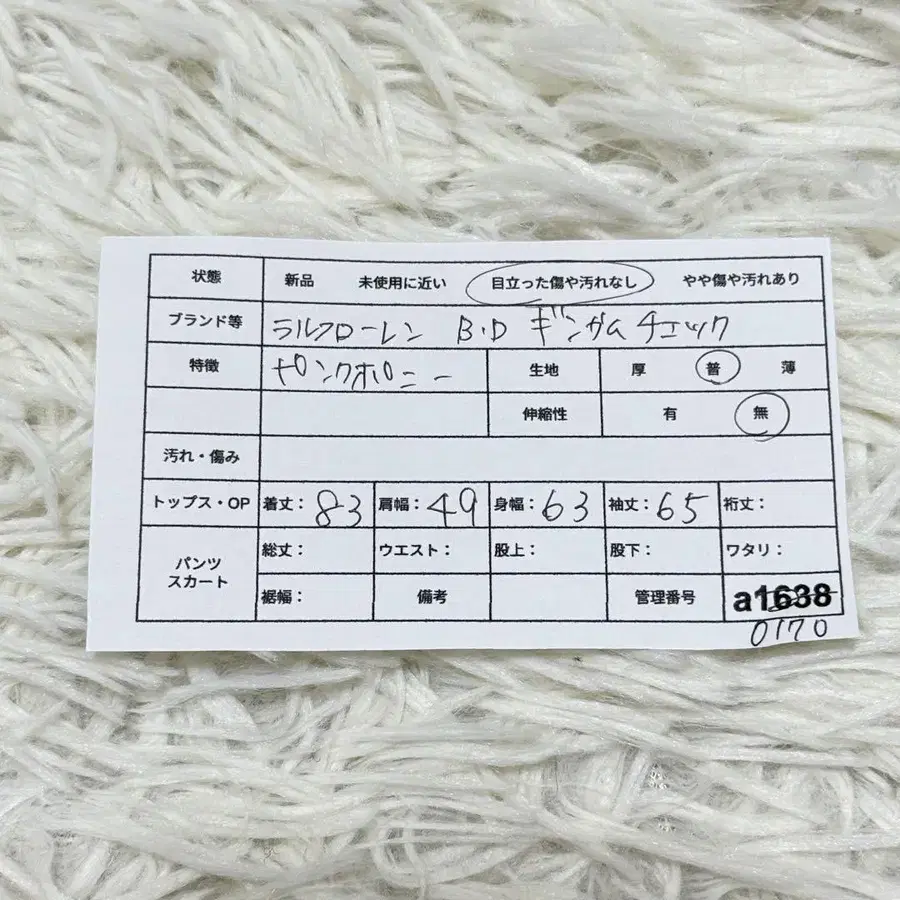 状態 新品 未使用に近い 目立った傷や汚れなし やや傷や汚れあり
ブランド等 ラルフローレン B.D ギンガムチェック
特徴 ピンクポニー 生地 厚 普 薄
伸縮性 有 無
汚れ・傷み
トップス・OP 着丈: 83 肩幅: 49 身幅: 63 袖丈: 65 裄丈:
パンツ スカート 総丈: ウエスト: 股上: 股下: ワタリ:
裾幅: 備考 管理番号 a1638
0170